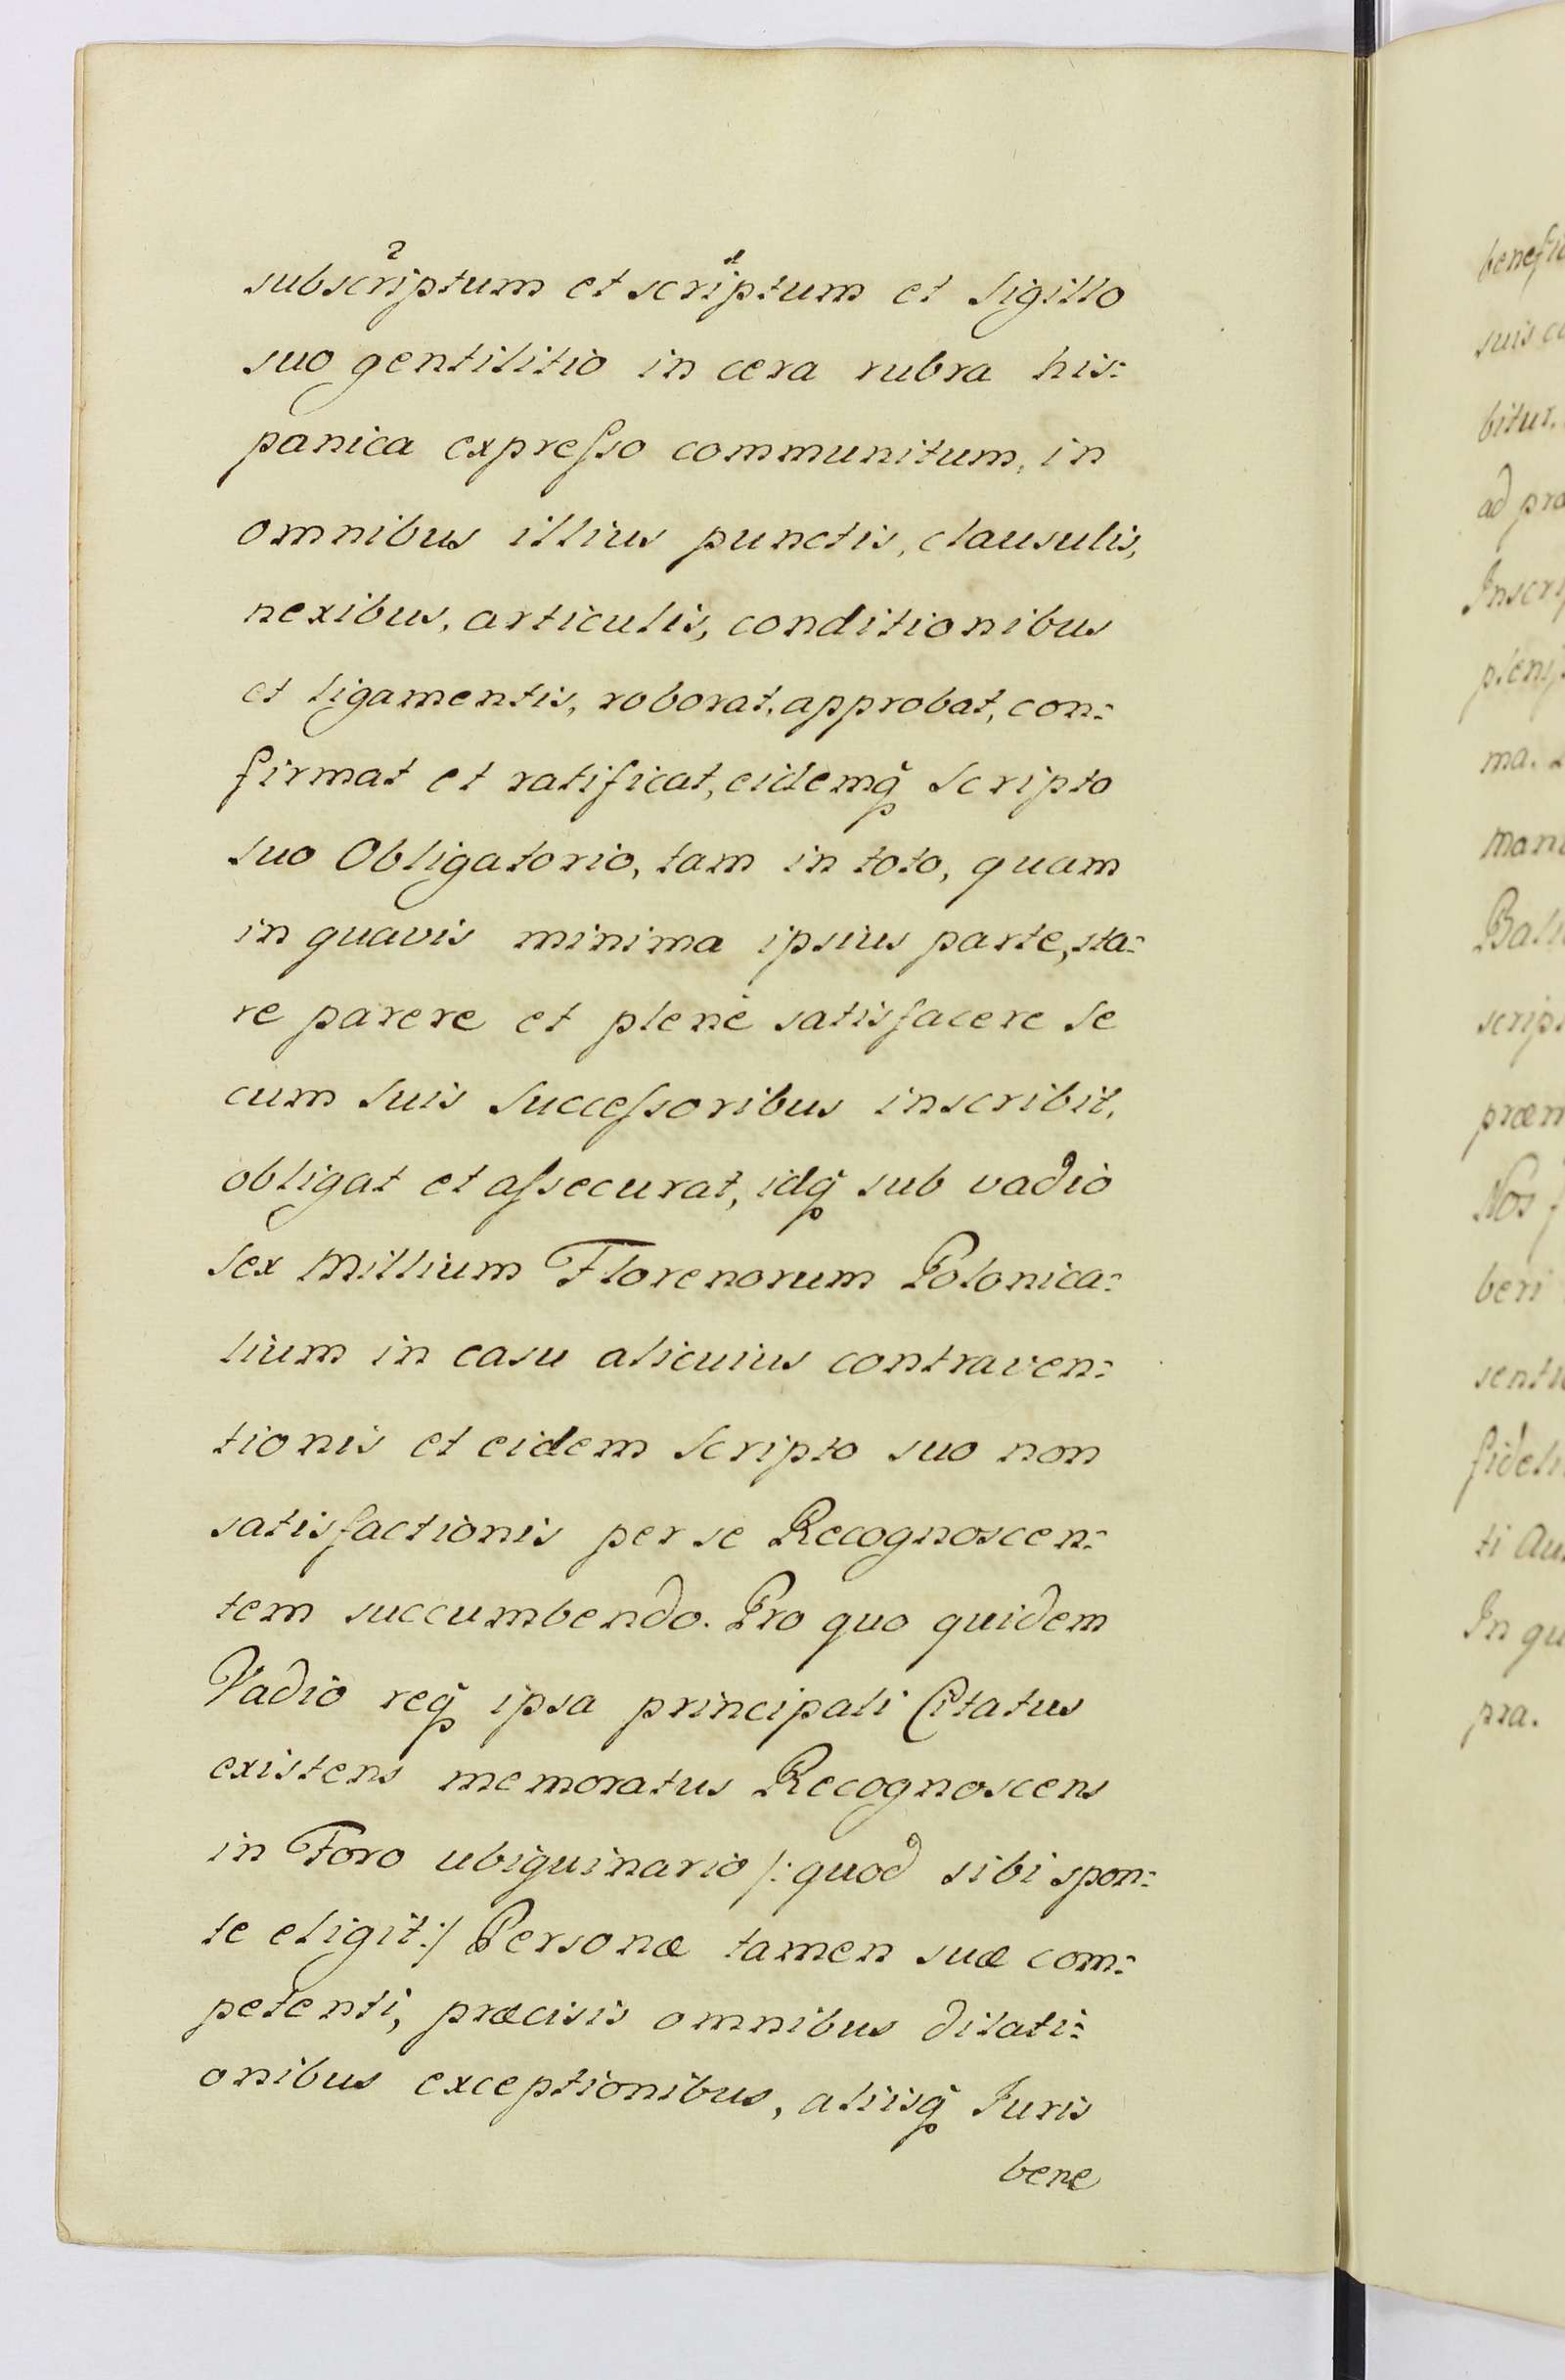 subscriptum et scriptum et Sigillo
suo gentilitio in cera rubra his:
panica expresso communitum, in
omnibus illius punctis, clausulis,
nexibus, articulis, conditionibus
et ligamentis, roborat, approbat, con:
firmat et ratificat, eidemq̃ Scripto
suo Obligatorio, tam in toto, quam
in quavis minima ipsius parte, sta:
re parere et plenè satisfacere Se
cum Suis Successoribus inscribit,
obligat et assecurat, idq̃ sub vadio
Sex Millium Florenorum Polonica:
lium in casu alicuius contraven:
tionis et eidem Scripto suo non
satisfactionis per se Recognoscen:
tem succumbendo. Pro quo quidem
Vadio req̃ ipsa principali Citatus
existens memoratus Recognoscens
in Foro ubiquinario /: quod sibi spon:
te eligit :/ Personæ tamen suæ com:
petenti, præcisis omnibus dilati:
onibus exceptionibus, aliisq̃ Juris
bene
benefi
suis
bitur.
ad
Inscri
ma.
mani
scrip
præm
Nos
beri
fideli
ti
In qu
pra.